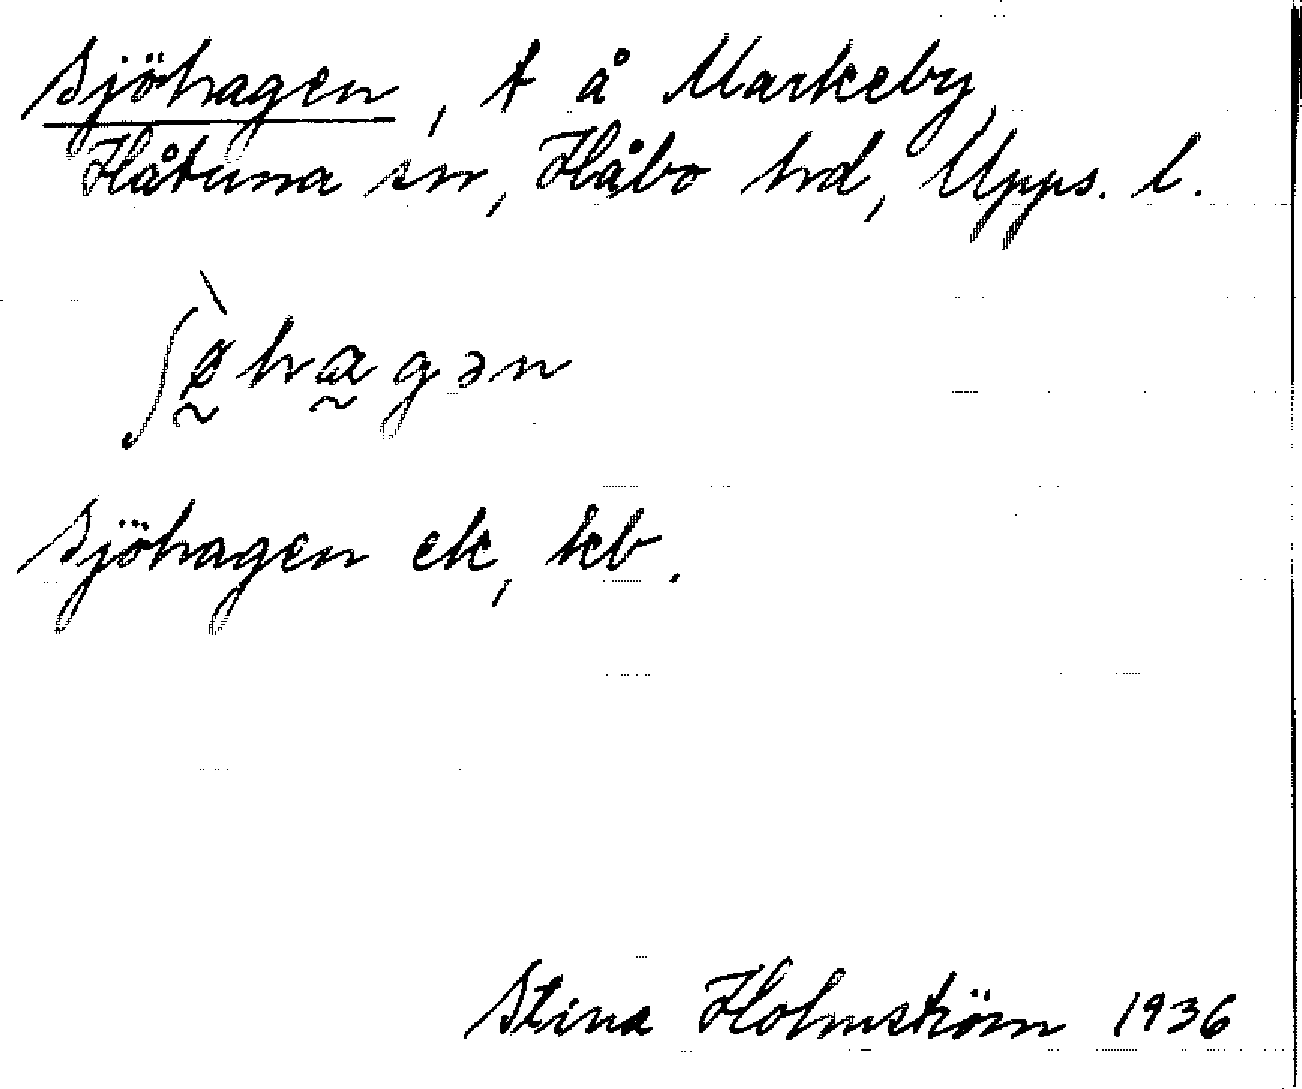 Sjöhagen, t å Markeby
Håtuna sn, Håbo hd, Upps. l.
ʃø̀hagən
Sjöhagen ek, kb.
Stina Holmström 1936